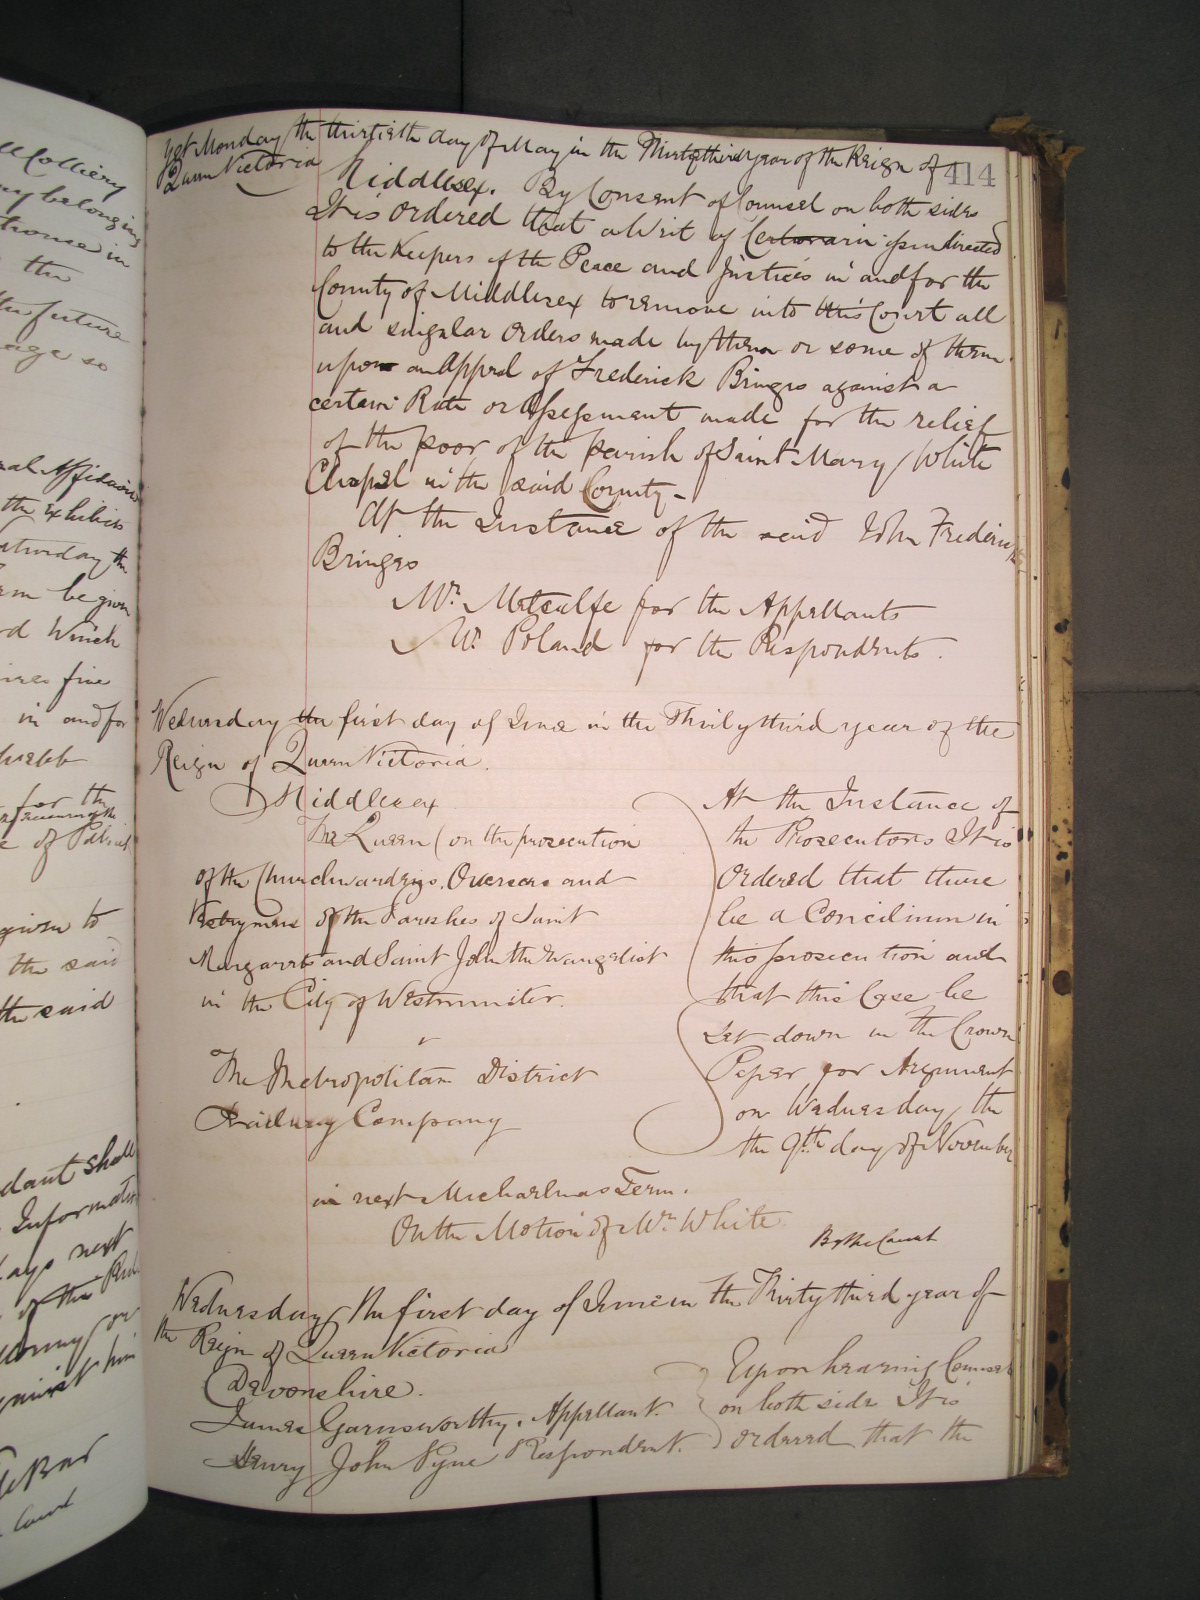 Yet Monday the thirtieth day of May in the Thirty third year of the Reign of
Queen Victoria
414
Middlesex. By Consent of Counsel on both sides
It is Ordered that a Writ of Certiorari issue directed
to the Keepers of the Peace and Justices in and for the
County of Middlesex to remove into this Court all
and singular orders made by them or some of them
upon an Appeal of Frederick Bringes against a
certain Rate or Assessment made for the relief
of the poor of the parish of Saint Mary White
Chapel in the said County-
At the Instance of the said John Frederick
Bringes
Mr. Metcalfe for the Appellants
Mr. Poland for the Respondents.
Wednesday the first day of June in the Thirty third year of the
Reign of Queen Victoria.
Middlesex
The Queen (on the prosecution
of the Churchwardens, Overseers and
Vestrymen of the Parishes of Saint
Margarets and Saint John the Evangelist
in the City of Westminster.
v
The Metropolitan District
Railway Company
At the Instance of
the Prosecutors It is
Ordered that there
be a Concilium in
this prosecution and
that this Case be
set down in the Crown
Paper for Argument
on Wednesday the
the 9th day of November
in next Michaelmas Term.
On the Motion of Mr. White
By the Court
Wednesday the first day of June in the Thirty third year of
the Reign of Queen Victoria
Devonshire.
James Garnsworthy, Appellant.
Henry John Pyne Respondent.
Upon hearing Counsel
on both side It is
ordered that the
Colliery
belonging
house in
the
future
age so
Affidavit
the exhibits
Saturday the
be given
Which
fine
in and for
for the
of Police
given to
the said
the said
shall
Information
days next
of the
or
against him
Court